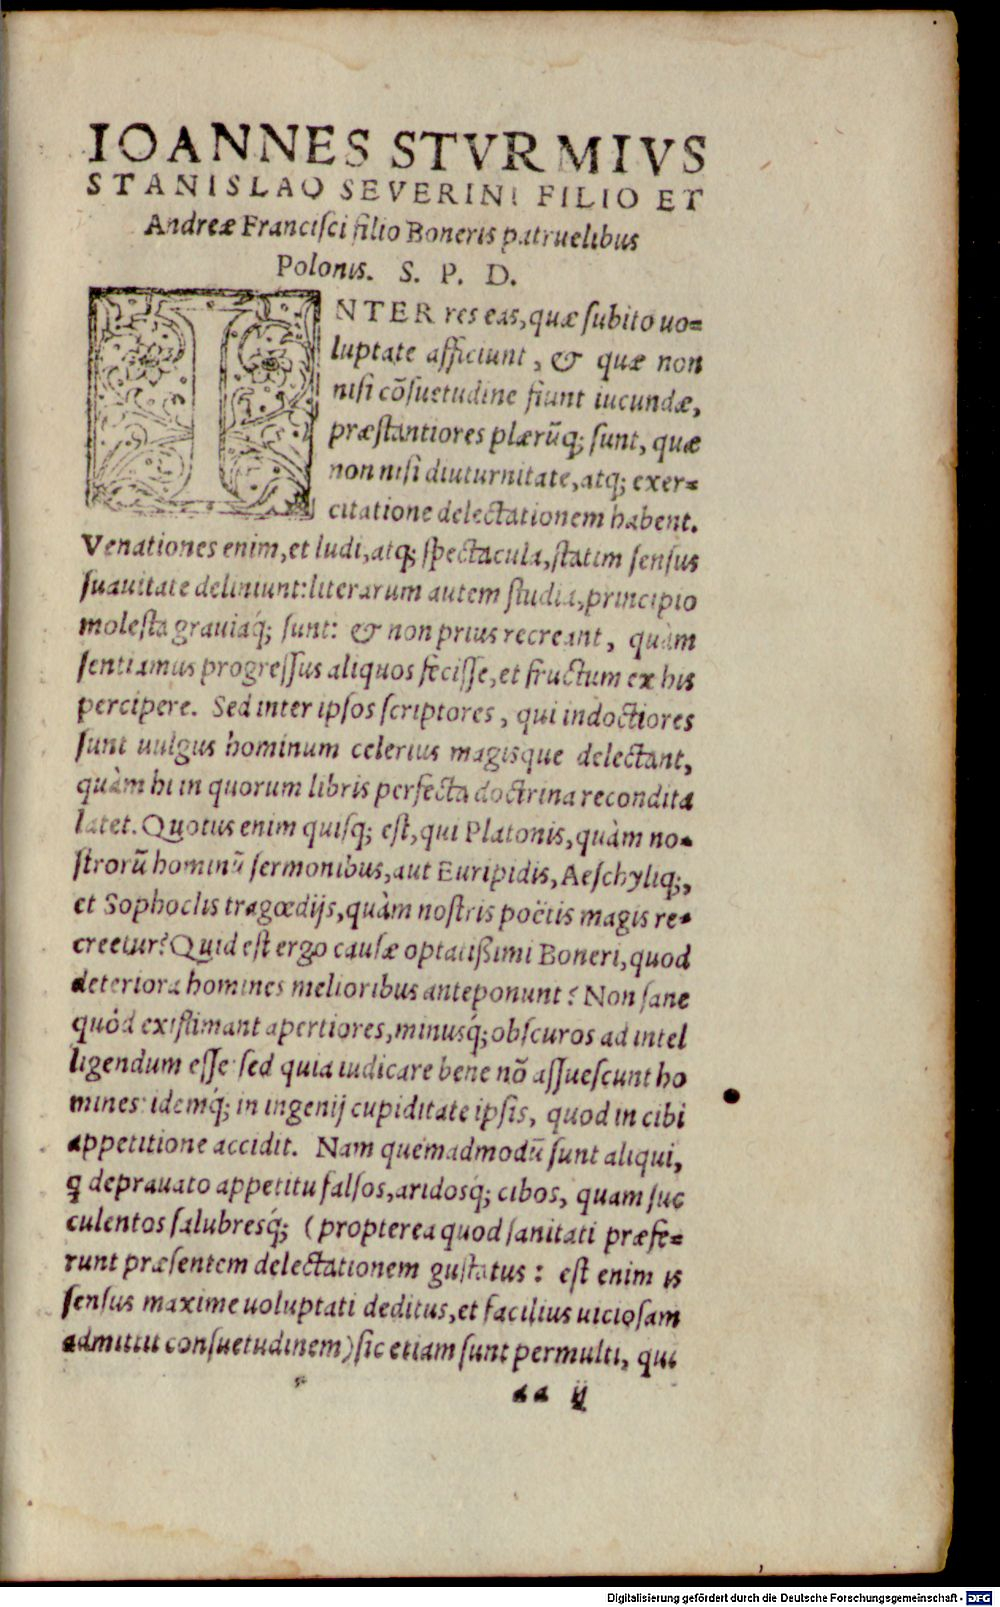 IOANNES STVRMIVS
STANISLAO SEVERINI FILIO ET
Andreæ Francisci filio Boneris patruelibus
Polonis. S. P. D.
INTER res eas, quæ subito uo=
luptate afficiunt, & quæ non
nisi cõsuetudine fiunt iucundæ,
præstantiores plærũq; sunt, quæ
non nisi diuturnitate, atq; exer=
citatione delectationem habent.
Venationes enim, et ludi, atq; spectacula, statim sensus
suauitate deliniunt: literarum autem studia, principio
molesta grauiáq; sunt: & non prius recreant, quàm
sentiamus progressus aliquos fecisse, et fructum ex his
percipere. Sed inter ipsos scriptores, qui indoctiores
sunt uulgus hominum celerius magisque delectant,
quàm hi in quorum libris perfecta doctrina recondita
latet. Quotus enim quisq; est, qui Platonis, quàm no=
strorũ hominũ sermonibus, aut Euripidis, Aeschyliq;,
et Sophoclis tragœdijs, quàm nostris poëtis magis re=
creetur? Quid est ergo causæ optatißimi Boneri, quod
deteriora homines melioribus anteponunt? Non sane
quòd existimant apertiores, minusq́; obscuros ad intel
ligendum esse: sed quia iudicare bene nõ assuescunt ho
mines: idemq́; in ingenij cupiditate ipsis, quod in cibi
appetitione accidit. Nam quemadmodũ sunt aliqui,
q deprauato appetitu falsos, aridosq; cibos, quam suc
culentos salubresq́; (propterea quod sanitati præfe=
runt præsentem delectationem gustatus: est enim is
sensus maxime uoluptati deditus, et facilius uiciosam
admittit consuetudinem) sic etiam sunt permulti, qui
aa ij
Digitalisierung gefördert durch die Deutsche Forschungsgemeinschaft - DFG